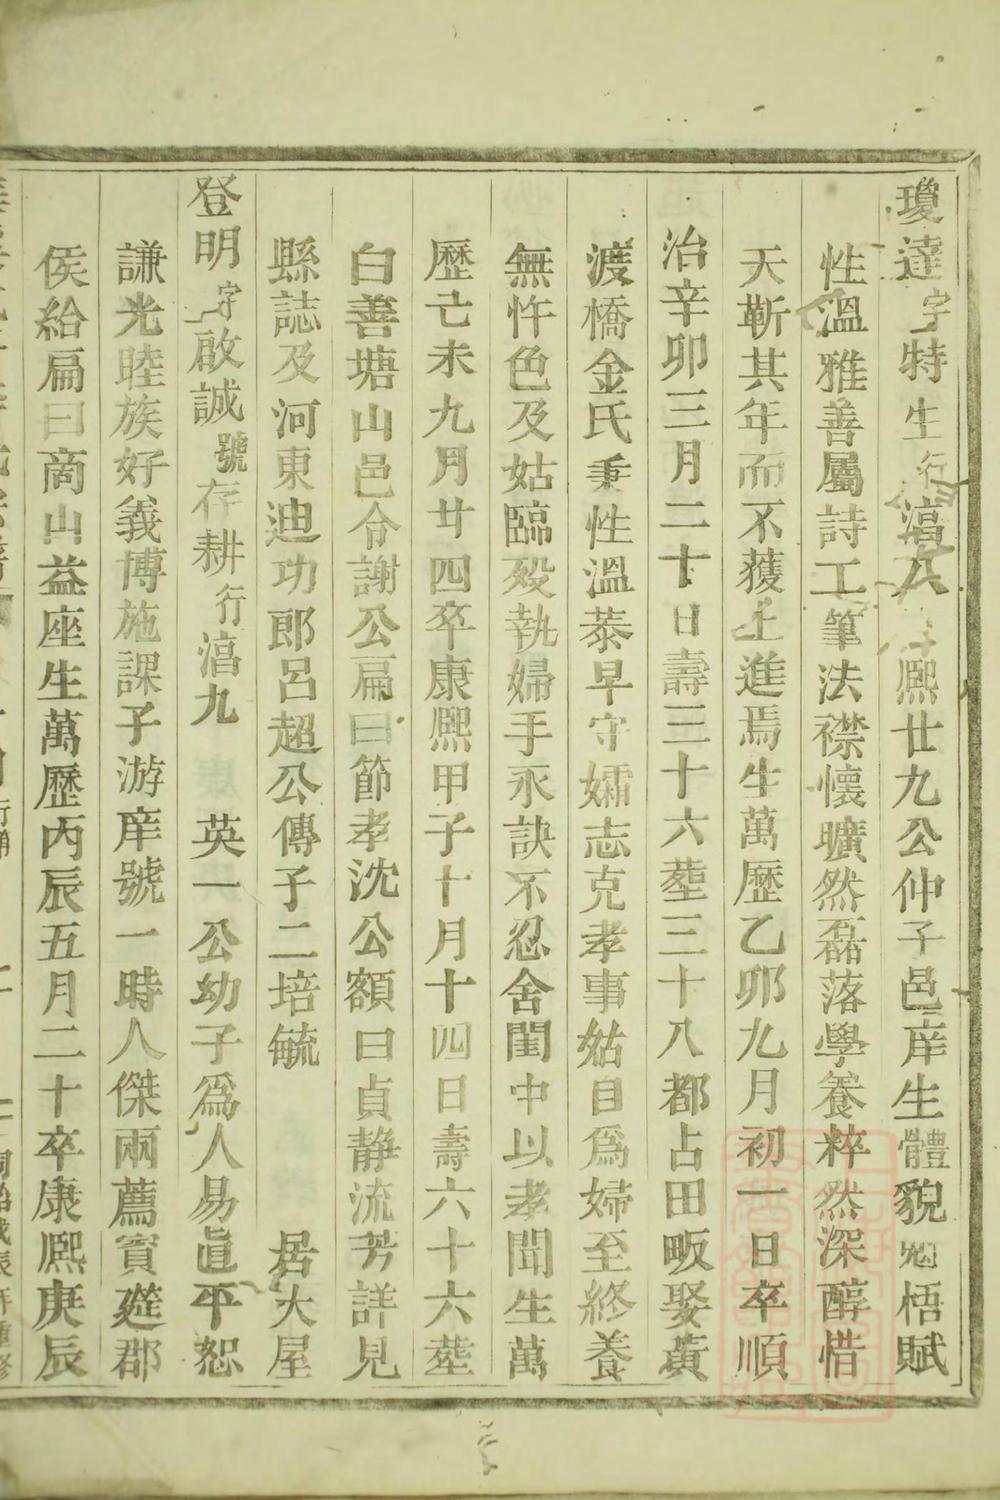 瓊達字特生行滈八熙廿九公仲子邑庠生體貌魁梧賦
性溫雅善屬詩工筆法襟懷曠然磊落學養粹然深醇惜
天靳其年而不獲上進焉生萬歷乙卯九月初一日卒順
治辛卯三月二十日壽三十六塟三十八都占田畈娶黃
渡橋金氏秉性溫恭早守孀志克孝事姑自為婦至終養
無忤色及姑臨歿執婦手永訣不忍舍閨中以孝聞生萬
歷己未九月廿四卒康熙甲子十月十四日壽六十六塟
白善塘山邑令謝公扁曰節孝沈公額曰貞静流芳詳見
縣誌及河東迪功郎呂超公傳子二培毓 居大屋
登明字啟誠號存耕行滈九 英一公幼子為人易直平恕
謙光睦族好義博施課子游庠號一時人傑兩薦賓筵郡
侯給扁曰商山益座生萬歷丙辰五月二十卒康熙庚辰